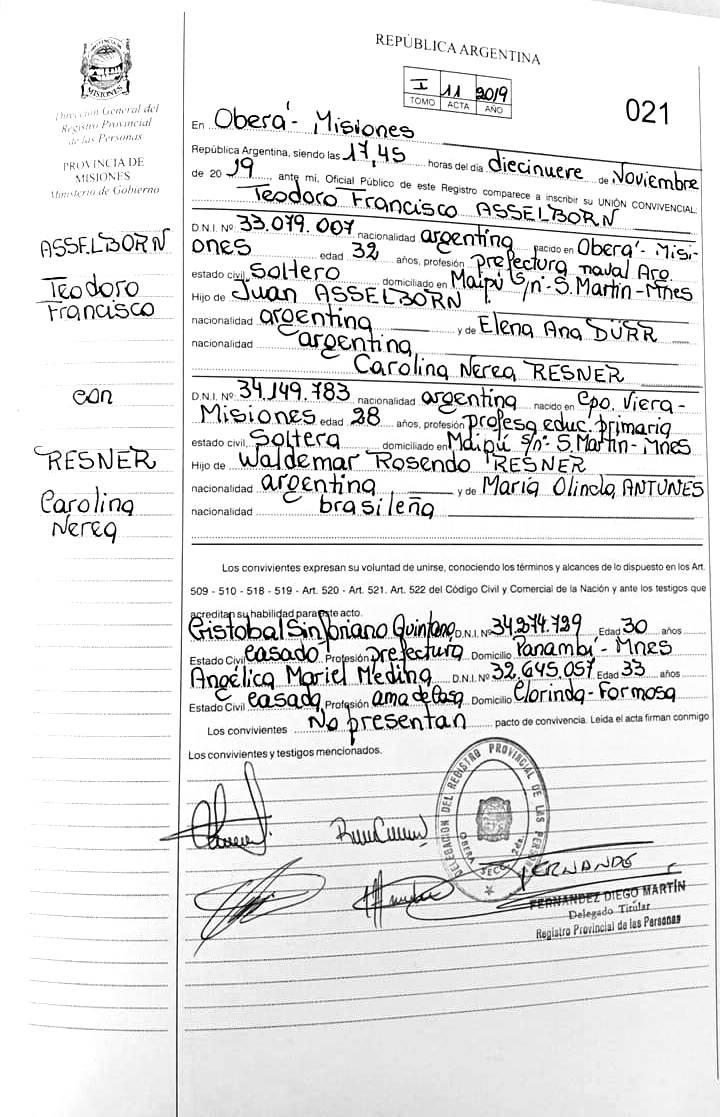 REPÚBLICA ARGENTINA
PROVINCIA DE MISIONES
I 11 2019
TOMO ACTA AÑO
021
Dirección General del
Registro Provincial
de las Personas
PROVINCIA DE
MISIONES
Ministerio de Gobierno
ASSELBORN
Teodoro
Francisco
con
RESNER
Carolina
Nerea
En Oberá - Misiones
República Argentina, siendo las 17,45 horas del día diecinueve de Noviembre
de 2019 ante mí, Oficial Público de este Registro comparece a inscribir su UNIÓN CONVIVENCIAL:
Teodoro Francisco ASSELBORN
D.N.I. Nº 33.079.007 nacionalidad argentina nacido en Oberá - Misi-
ones edad 32 años, profesión prefectura naval Arg.
estado civil Soltero domiciliado en Maipú s/nº - S. Martin - Mnes
Hijo de Juan ASSELBORN
nacionalidad argentina y de Elena Ana DÜRR
nacionalidad argentina
Carolina Nerea RESNER
D.N.I. Nº 34.149.783 nacionalidad argentina nacido en Cpo. Viera -
Misiones edad 28 años, profesión profesa educ. primaria
estado civil Soltera domiciliado en Maipú s/nº S. Martin - Mnes
Hijo de Waldemar Rosendo RESNER
nacionalidad argentina y de María Olinda ANTUNES
nacionalidad brasileña
Los convivientes expresan su voluntad de unirse, conociendo los términos y alcances de lo dispuesto en los Art.
509 - 510 - 518 - 519 - Art. 520 - Art. 521. Art. 522 del Código Civil y Comercial de la Nación y ante los testigos que
acreditan su habilidad para este acto.
Cristobal Sinforiano Quintana D.N.I. Nº 34.274.729 Edad 30 años
Estado Civil casado Profesión prefectura Domicilio Panambí - Mnes
Angélica Mariel Medina D.N.I. Nº 32.645.057 Edad 33 años
Estado Civil casada Profesión ama de casa Domicilio Clorinda - Formosa
Los convivientes No presentan pacto de convivencia. Leida el acta firman conmigo
Los convivientes y testigos mencionados.
DELEGACION DEL REGISTRO PROVINCIAL DE LAS PERSONAS
OBERA SECC. 2da.
FERNANDO
FERNANDEZ DIEGO MARTÍN
Delegado Titular
Registro Provincial de las Personas